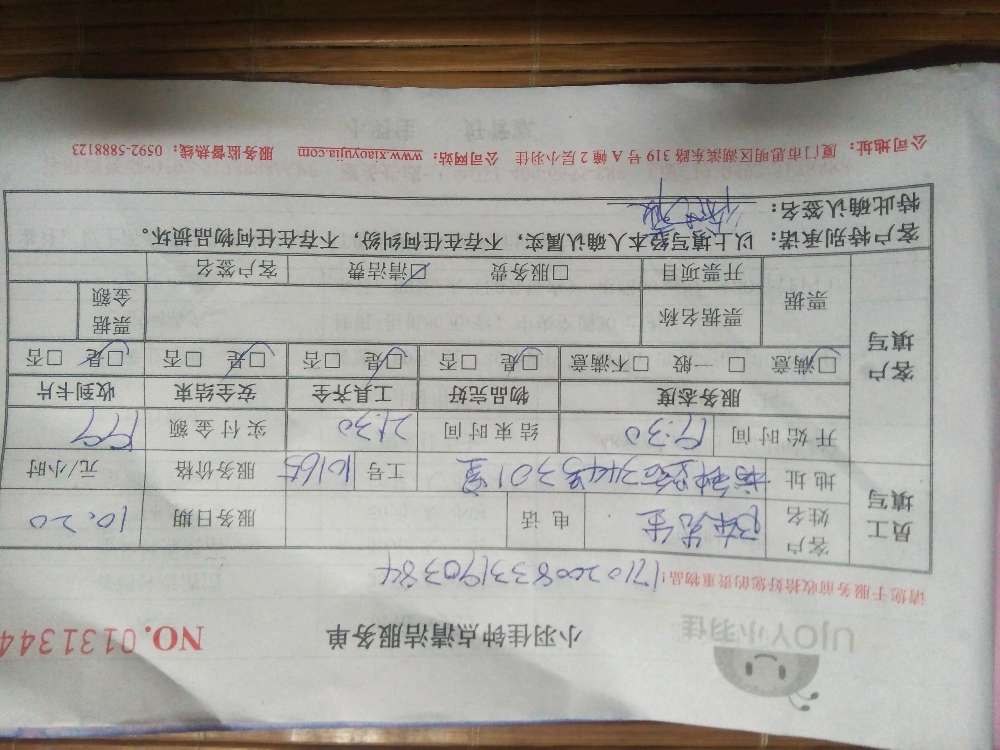 UJOY小羽佳
小羽佳钟点清洁服务单
NO.0131344
请您于服务前收拾好您的贵重物品!
171020083319O384
员工填写 客户姓名 陈先生 电话 服务日期 10.20
地址 344号301室 工号 10165 服务价格 元/小时
开始时间 17:30 结束时间 21:30 实付金额 199
客户填写 服务态度 物品完好 工具齐全 安全结束 收到卡片
☑满意 □一般 □不满意 ☑是 □否 ☑是 □否 ☑是 □否 ☑是 □否
票据 票据名称 票据金额
开票项目 □服务费 ☑清洁费 客户签名
客户特别承诺:以上填写经本人确认属实,不存在任何纠纷,不存在任何物品损坏。
特此确认签名:
公司地址:厦门市思明区湖滨东路 319 号 A 幢 2 层小羽佳 公司网站:www.xiaoyujia.com 服务监督热线:0592-5888123